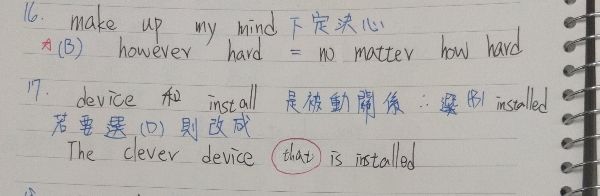 16. make up my mind 下定決心
A (B) however hard = no matter how hard
17. device 和 install 是被動關係 ∴ 選 (B) installed
若要選 (D) 則改成
The clever device that is installed